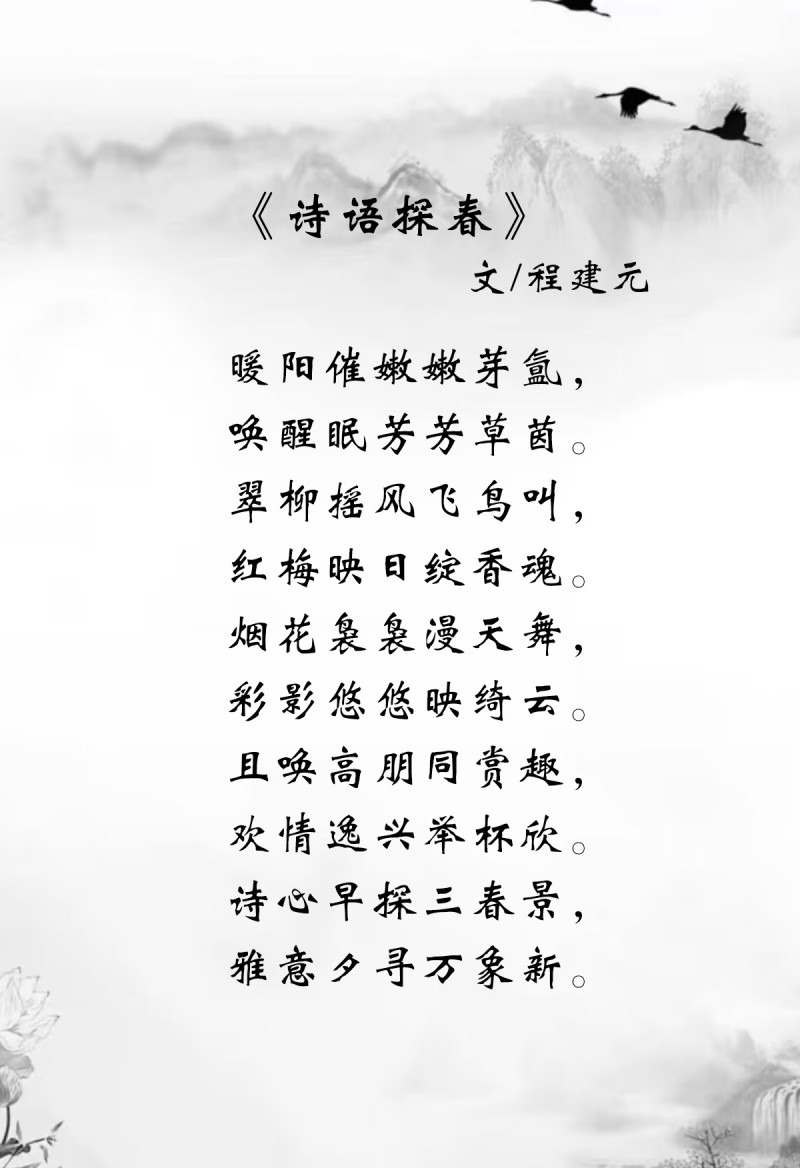 《诗语探春》
文/程建元
暖阳催嫩嫩芽氲，
唤醒眠芳芳草茵。
翠柳摇风飞鸟叫，
红梅映日绽香魂。
烟花袅袅漫天舞，
彩影悠悠映绮云。
且唤高朋同赏趣，
欢情逸兴举杯欣。
诗心早探三春景，
雅意夕寻万象新。